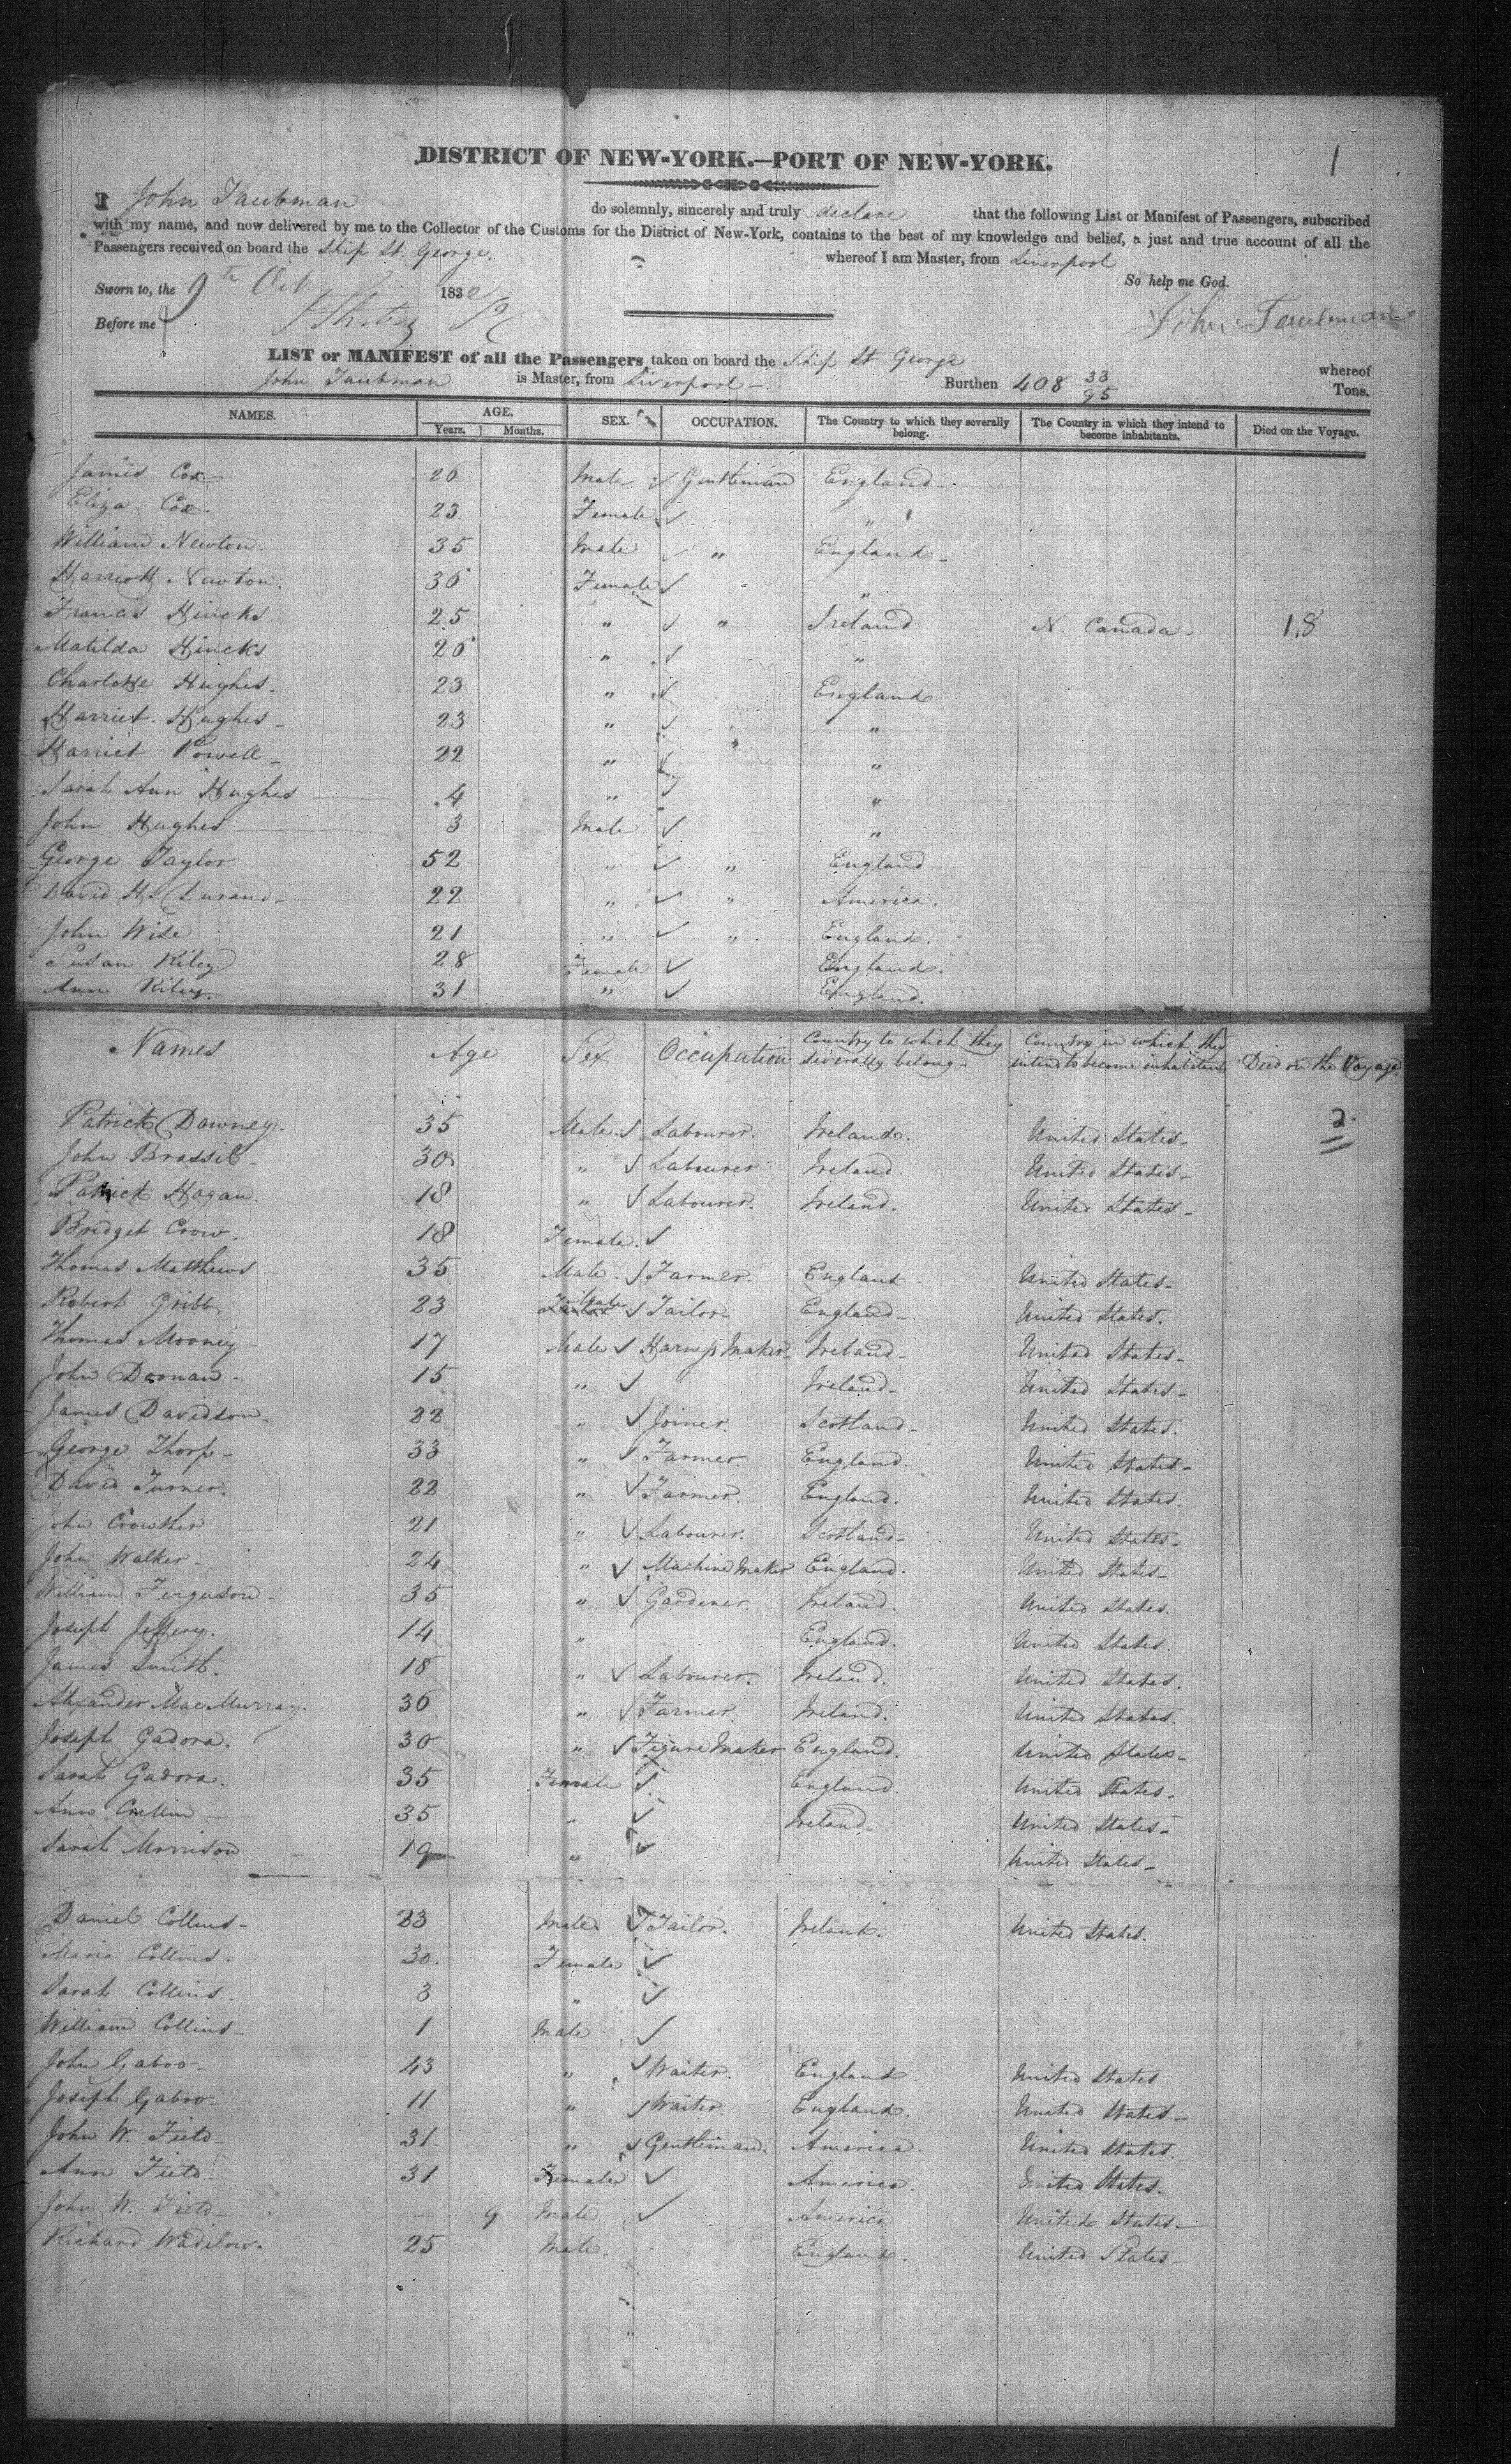 1
DISTRICT OF NEW-YORK.—PORT OF NEW-YORK.
I John Taubman do solemnly, sincerely and truly declare that the following List or Manifest of Passengers, subscribed
with my name, and now delivered by me to the Collector of the Customs for the District of New-York, contains to the best of my knowledge and belief, a just and true account of all the
Passengers received on board the Ship St. George. whereof I am Master, from Liverpool
So help me God.
Sworn to, the 9th Oct 1832
Before me John Taubman
LIST or MANIFEST of all the Passengers taken on board the Ship St George whereof
John Taubman is Master, from Liverpool — Burthen 408 33/95 Tons.
NAMES. AGE. SEX. OCCUPATION. The Country to which they severally belong. The Country in which they intend to become inhabitants. Died on the Voyage.
Years. Months.
James Cox 26 Male ✓ Gentleman England
Eliza Cox. 23 Female ✓ "
William Newton. 35 Male ✓ " England
Harriott Newton. 36 Female ✓ "
Francis Hincks 25 " ✓ " Ireland N. Canada 18
Matilda Hincks 26 " ✓ "
Charlotte Hughes. 23 " ✓ England
Harriet Hughes 23 " ✓ "
Harriet Powell 22 " ✓ "
Sarah Ann Hughes 4 " ✓ "
John Hughes 3 Male ✓ "
George Taylor 52 " ✓ " England
David H. Durand 22 " ✓ " America.
John Wise 21 " ✓ " England.
Susan Riley 28 Female ✓ England.
Ann Riley. 31 " ✓ England.
Names Age Sex Occupation Country to which they severally belong Country in which they intend to become inhabitants Died on the Voyage.
2
Patrick Downey. 35 Male ✓ Labourer. Ireland. United States
John Brassil 30 " ✓ Labourer Ireland. United States
Patrick Hogan. 18 " ✓ Labourer. Ireland. United States
Bridget Crow. 18 Female. ✓
Thomas Matthews 35 Male ✓ Farmer. England United States
Robert Gribb 23 Male ✓ Tailor England United States.
Thomas Mooney 17 Male ✓ Harness Maker Ireland United States
John Doonan 15 " ✓ Ireland United States
James Davidson 22 " ✓ Joiner. Scotland United States.
George Thorp 33 " ✓ Farmer. England. United States
David Turner. 22 " ✓ Farmer. England. United States.
John Crowther 21 " ✓ Labourer. Scotland United States
John Walker 24 " ✓ Machine Maker England. United States
William Ferguson 35 " ✓ Gardener. Ireland. United States.
Joseph Jeffery. 14 " England. United States.
James Smith. 18 " ✓ Labourer. Ireland. United States.
Alexander MacMurray. 36 " ✓ Farmer. Ireland. United States.
Joseph Gadora. 30 " ✓ Figure Maker England. United States
Sarah Gadora. 35 Female ✓ England. United States
Ann Crellin 35 " ✓ Ireland United States
Sarah Morrison 19 " ✓ United States
Daniel Collins 33 Male ✓ Tailor. Ireland. United States.
Maria Collins. 30. Female ✓
Sarah Collins. 3 " ✓
William Collins 1 Male ✓
John Gaboo 43 " ✓ Waiter. England. United States
Joseph Gaboo 11 " ✓ Waiter. England. United States
John W. Field 31 " ✓ Gentleman. America. United States.
Ann Field 31 Female ✓ America. United States.
John W. Field — 9 Male ✓ America United States
Richard Wadilow. 25 Male England. United States